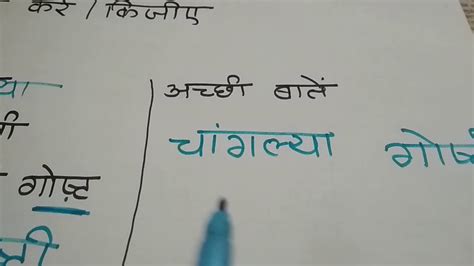 करे / किजीए
गोष्ट
अच्छी बातें
चांगल्या